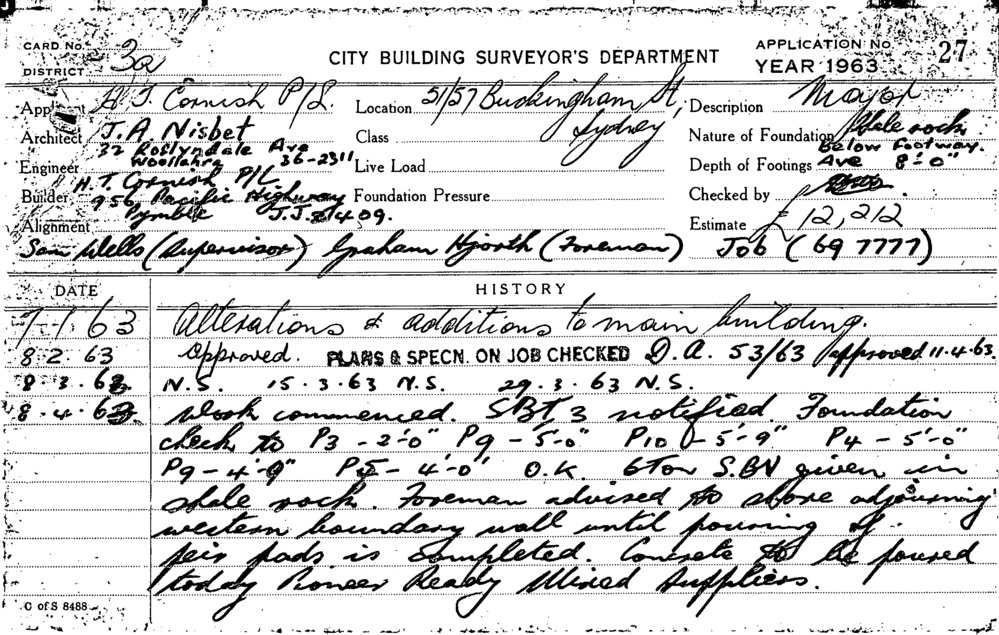 CARD No. 3a
CITY BUILDING SURVEYOR'S DEPARTMENT
APPLICATION No. 27
DISTRICT
YEAR 1963
Applicant H. T. Cornish P/L.
Location 51/57 Buckingham St,
Sydney
Description Major
Architect J. A. Nisbet
32 Roslyndale Ave
Woollahra 36-2311
Class
Nature of Foundation Shale rock
below footway.
Engineer
Live Load
Depth of Footings Ave 8'-0"
Builder H. T. Cornish P/L
956, Pacific Highway
Pymble J.J. 8409.
Foundation Pressure
Checked by
Alignment
Estimate £ 12,212
Sam Wells (Supervisor) Graham Hjorth (Foreman) Job (69 7777)
DATE HISTORY
7 1 63 Alterations & additions to main building.
8 2. 63 Approved. PLANS & SPECN. ON JOB CHECKED D.A. 53/63 approved 11.4.63.
8. 3. 63 N.S. 15.3.63 N.S. 29.3.63 N.S.
8. 4. 63 Work commenced. SBI 3 notified. Foundation
check to P3 - 3'-0" P9 - 5'-0" P10 - 5'-9" P4 - 5'-0"
P9 - 4'-9" P5 - 4'-0" O.K. 6 Ton S.BV given in
shale rock. Foreman advised to shore adjourning
western boundary wall until pouring of
peir pads is completed. Concrete to be poured
today Pioneer Ready Mixed Suppliers.
C of S 8488